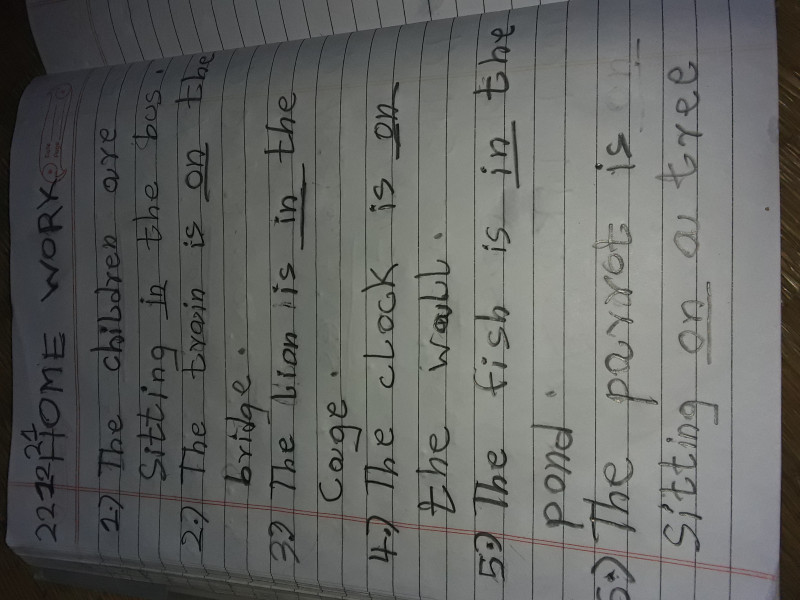 22 12 21
HOME WORK
1.) The children are
Sitting in the bus.
2.) The train is on the
bridge.
3.) The Lion is in the
Cage.
4.) The cLock is on
the wall.
5.) The fish is in the
pond.
6.) The parrot is on
Sitting on a tree